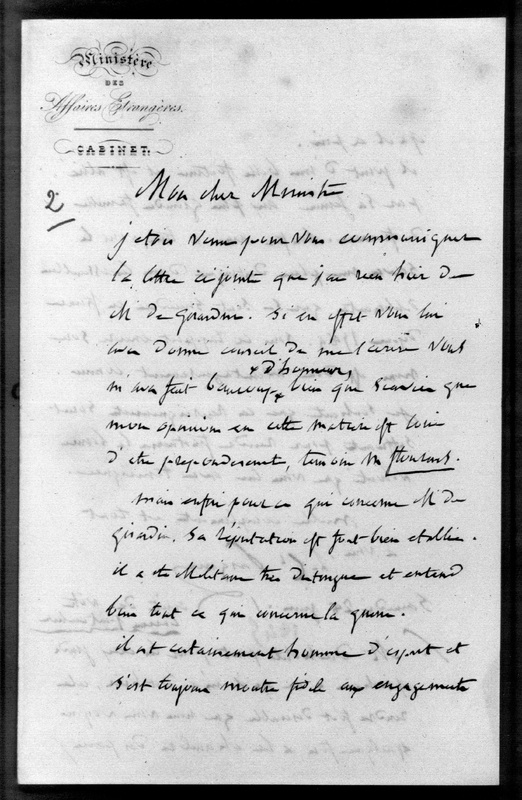 Ministère
DES
Affaires Etrangères.
CABINET.
2
Mon cher Ministre
j'etois venu pour vous communiquer
la lettre ci jointe que j'ai reçu hier de
M de Girardin. Si en effet vous lui
avez donné conseil de me l'écrire vous
+ d'honneur,
m'avez fait beaucoup + bien que je
mon opinion en cette matiere est loin
d'etre preponderant, temoin Mr flourens.
mais enfin pour ce qui concerne M de
Girardin. Sa réputation est fort bien etablie.
il a eté Militaire tres distingué et entend
bien tout ce qui concerne la guerre.
il est certainement homme d'esprit et
s'est toujours montré fidele aux engagements